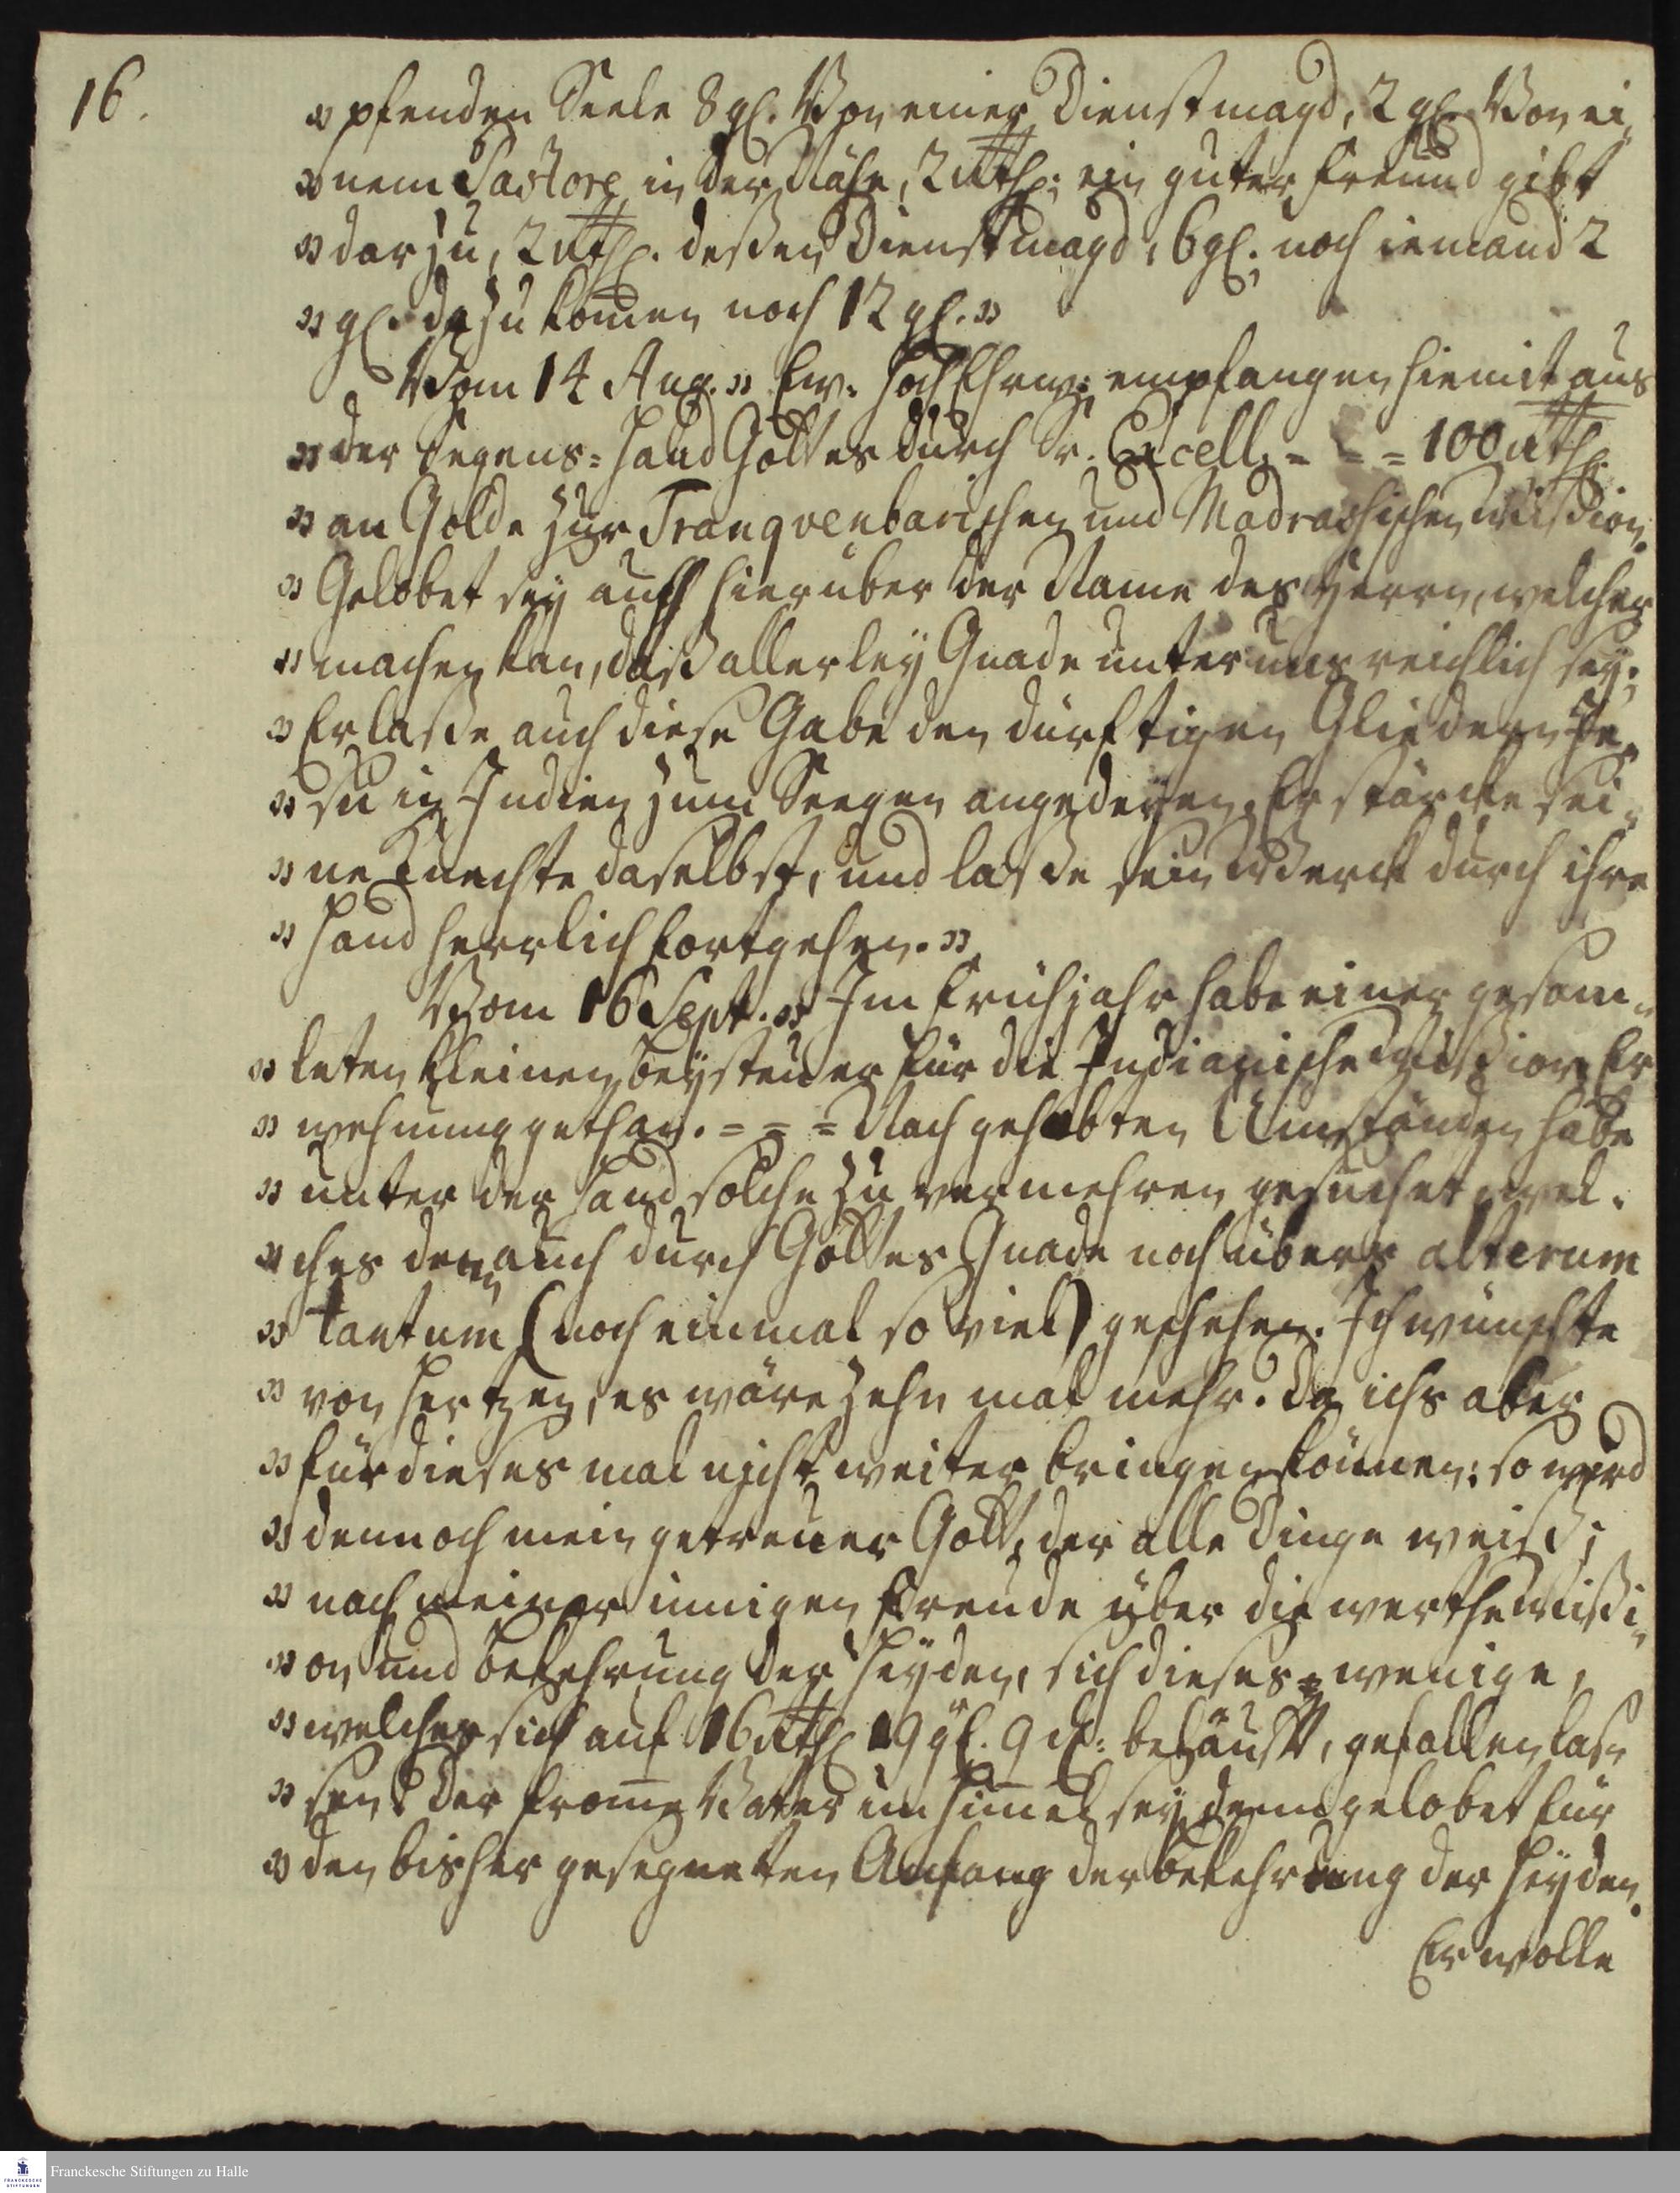 16.
" pfenden Seele 8 gl. Von einer Dienstmagd, 2 gl. Von ei„
" nem Pastore in der Nähe, 2 rthl.; ein guter Freund gibt
" darzu, 2 rthl. deßen Dienstmagd, 6 gl.; noch iemand 2
" gl. dazu kom̄en noch 12 gl. "
Vom 14 Aug. " Ew. HochEhrw: empfangen hiemit aus
" der Segens-Hand Gottes durch Sr. Excell. - - - 100 rthl.
" an Golde zur Tranqvenbarischen und Madrassischen Mission.
" Gelobet sey auch hierüber der Name des Herrn, welcher
" machen kan, daß allerley Gnade unter uns reichlich sey;
" Er laße auch diese Gabe den dürftigen Gliedern Je„
" su in Indien zum Seegen angedeyen. Er stärcke sei„
" ne Knechte daselbst, und laße sein Werck durch ihre
" Hand herrlich fortgehen. "
Vom 16 Sept. " Im Frühjahr habe einer gesam„
" leten kleinen Beysteuer für die Indianische Mission Er
" wehnung gethan. = = = Nach gehabten Umständen habe
" unter der Hand solche zu vermehren gesuchet, wel„
" ches denn auch durch Gottes Gnade noch übers alterum
" tantum (noch einmal so viel) geschehen. Ich wünschte
" von Hertzen, es wäre zehn mal mehr. Da ichs aber
" für dieses mal nicht weiter bringen können: so wird
" dennoch mein getreuer Gott, der alle Dinge weiß,
" nach meiner innigen Freude über die werthe Missi„
" on und Bekehrung der Heyden, sich dieses wenige,
" welches sich auf 16 rthl 19 gl. 9 d. beläufft, gefallen las„
" sen. Der from̄e Vater im Him̄el sey denn gelobet für
" den bisher gesegneten Anfang der Bekehrung der Heyden.
Er wolle
Franckesche Stiftungen zu Halle